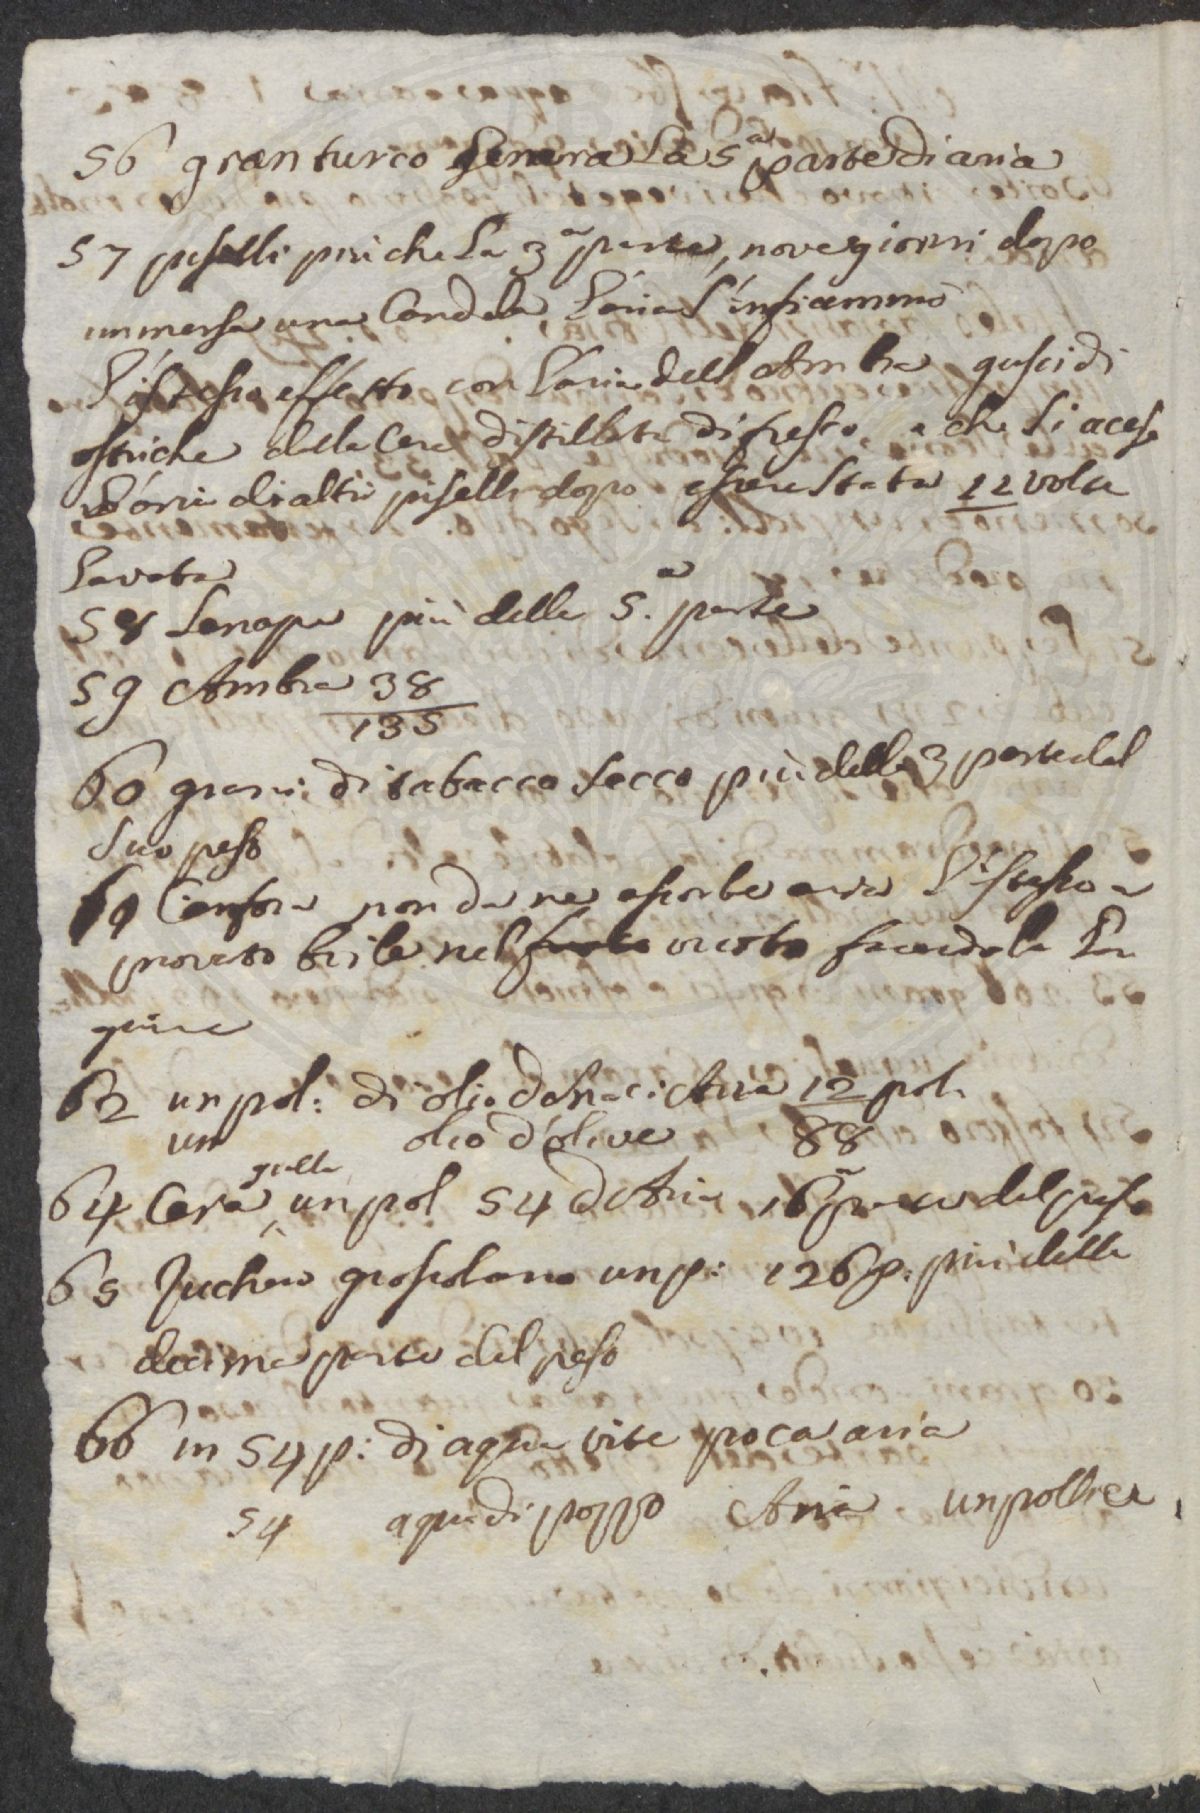 56 granturco genera la 5.a parte di aria
57 piselli più che la 3a parte, nove giorni dopo
immersa una Candela l'aria s'infiammò
l'istesso effetto con l'aria dell Ambra gusci di
ostriche della Cera distillata di fresco, e che si acese
l'aria di altri piselli dopo essere stata 12 volte
lavata
58 Senapa più della 5.a parte
59 Ambra 38
135
60 grani di tabacco secco più della 3 parte del
suo peso
61 Canfora non da ne assorbe aria l'istesso a
provato Boile nel vuoto facendola
62 un pol: di olio d'Anaci Aria 12 pol.
un olio d'olive 88
64 Cera gialla un pol 54 d Aria 16a parte del peso
65 Zuchero grossolano un p: 126 p. più della
decima parte del peso
66 in 54 p: di aqua vite poca aria
54 aqua di pozzo Aria un pollice